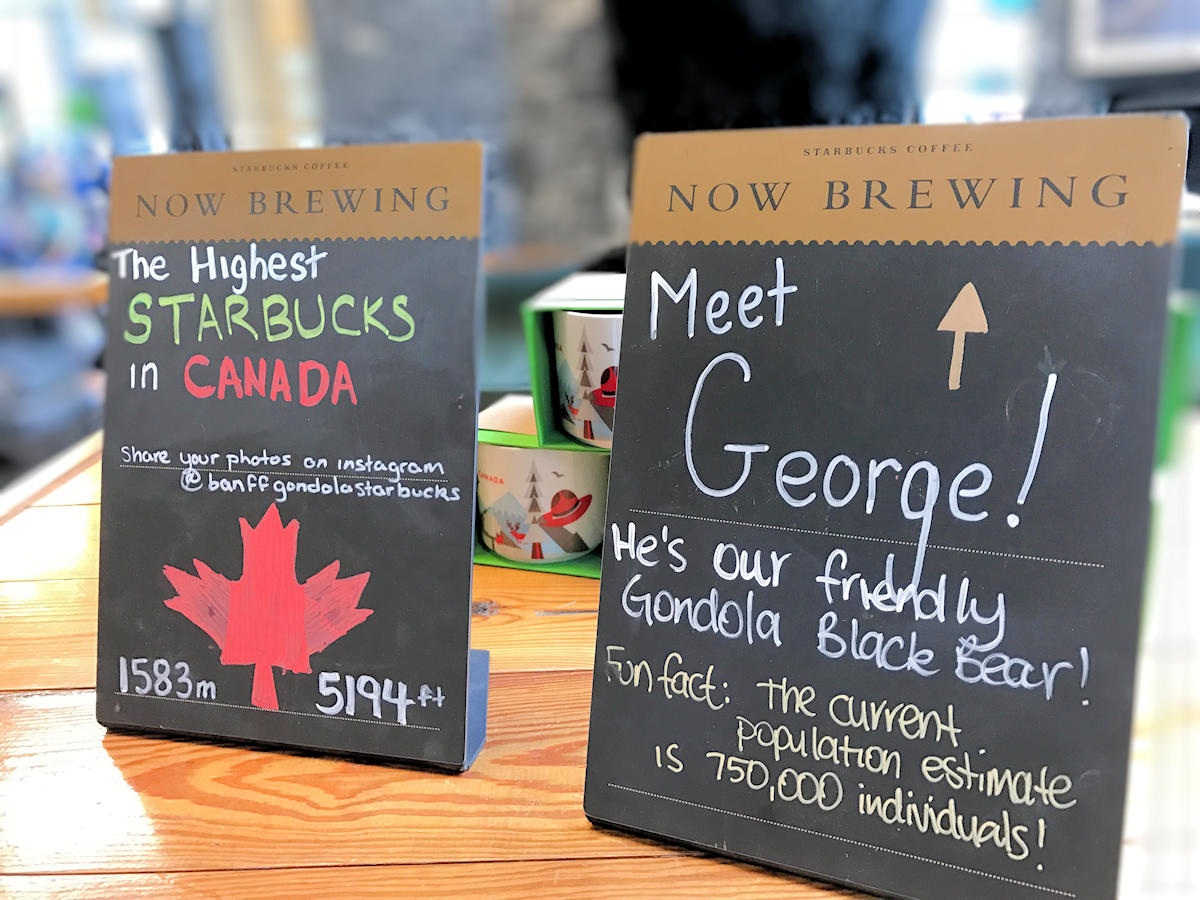 STARBUCKS COFFEE
NOW BREWING
The Highest
STARBUCKS
in CANADA
Share your photos on instagram
@banffgondolastarbucks
1583m 5194ft
CANADA
STARBUCKS COFFEE
NOW BREWING
Meet
George!
He's our friendly
Gondola Black Bear!
Fun fact: The current
population estimate
is 750,000 individuals!